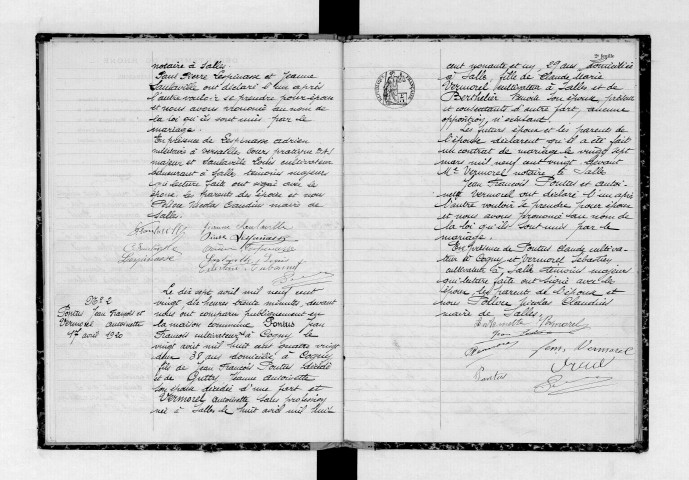 notaire à Salles.
Paul Pierre Lespinasse et Jeanne
Santaville ont déclaré l'un après
l'autre vouloir se prendre pour époux
et nous avons prononcé au nom de
la loi qu'ils sont unis par le
mariage.
En présence de Lespinasse
militaire à Versailles,
majeur et Santaville Louis cultivateur
demeurant à Salle témoins majeurs
qui lecture faite ont signé avec les
époux les parents de l'épouse et nous
Pollere Nicolas Claudius maire de
Salle.
Jeanne Santaville
Pierre Lespinasse
Lespinasse
Santaville Louis
N° 2
Pontus Jean François et
Vermorel antoinette
17 avril 1920
Le dix sept avril mil neuf cent
vingt dix heures trente minutes, devant
nous ont comparu publiquement en
la maison commune Pontus Jean
François cultivateur à Cogny le
vingt avril mil huit cent quatre vingt
deux 38 ans domicilié à Cogny
fils de Jean François Pontus décédé
et de Jeanne antoinette
son épouse décédée d'une part et
Vermorel antoinette sans profession
née à Salles le huit avril mil huit
2e feuille
RÉPUBLIQUE FRANÇAISE
cent nonante et un, 29 ans domiciliée
à Salle, fille de Claude Marie
Vermorel cultivateur à Salles et de
Berthelier son épouse présents
et consentant d'autre part, aucune
opposition n'existant.
Les futurs époux et les parents de
l'épouse déclarent qu'il a été fait
un contrat de mariage le vingt sept
mars mil neuf cent vingt devant
Me Vermorel notaire à Salle
Jean François Pontus et antoi-
nette Vermorel ont déclaré l'un après
l'autre vouloir se prendre pour époux
et nous avons prononcé au nom de
la loi qu'ils sont unis par le
mariage.
En présence de Pontus Claude cultiva-
teur à Cogny et Vermorel Sébastien
cultivateur à Salle témoins majeurs
qui lecture faite ont signé avec les
époux, les parents de l'épouse et
nous Pollere Nicolas Claudius
maire de Salles.
Vermorel
Vermorel
Pontus